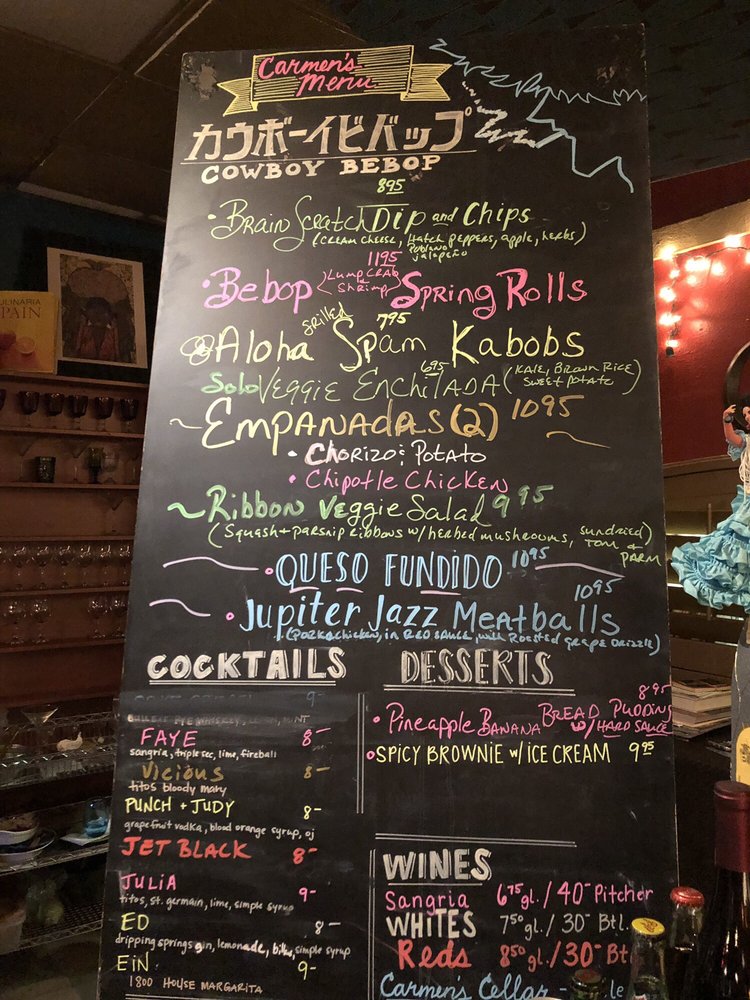 Carmen's
Menu
カウボーイビバップ
COWBOY BEBOP
8 95
• BRAIN SCRATCH DIP AND CHIPS
(CREAM CHEESE, HATCH PEPPERS, APPLE, HERBS)
POBLANO
JALAPEÑO
11 95
• BEBOP (LUMP CRAB SHRIMP) SPRING ROLLS
GRILLED 7 95
ALOHA SPAM KABOBS
6 95
Solo VEGGIE ENCHILADA (KALE, BROWN RICE, SWEET POTATO)
~ EMPANADAS (2) 10 95
• CHORIZO & POTATO
• CHIPOTLE CHICKEN
~ RIBBON VEGGIE SALAD 9 95
(SQUASH + PARSNIP RIBBONS W/ HERBED MUSHROOMS, SUNDRIED TOM & PARM)
• QUESO FUNDIDO 10 95
10 95
• JUPITER JAZZ MEATBALLS
(PORK & CHICKEN, IN RED SAUCE, WITH ROASTED GRAPE DRIZZLE)
COCKTAILS
9-
FAYE 8-
sangria, triple sec, lime, fireball
Vicious 8-
titos bloody mary
PUNCH + JUDY 8-
grapefruit vodka, blood orange syrup, oj
JET BLACK 8-
JULIA 9-
titos, st. germain, lime, simple syrup
ED 8-
dripping springs gin, lemonade, simple syrup
EIN 9-
1800 HOUSE MARGARITA
DESSERTS
8 95
• PINEAPPLE BANANA BREAD PUDDING W/ HARD SAUCE
• SPICY BROWNIE W/ ICE CREAM 9 95
WINES
Sangria 6 75 gl. / 40- Pitcher
WHITES 7 50 gl. / 30- Btl.
Reds 8 50 gl. / 30- Btl
Carmen's Cellar -
ULINARIA
PAIN